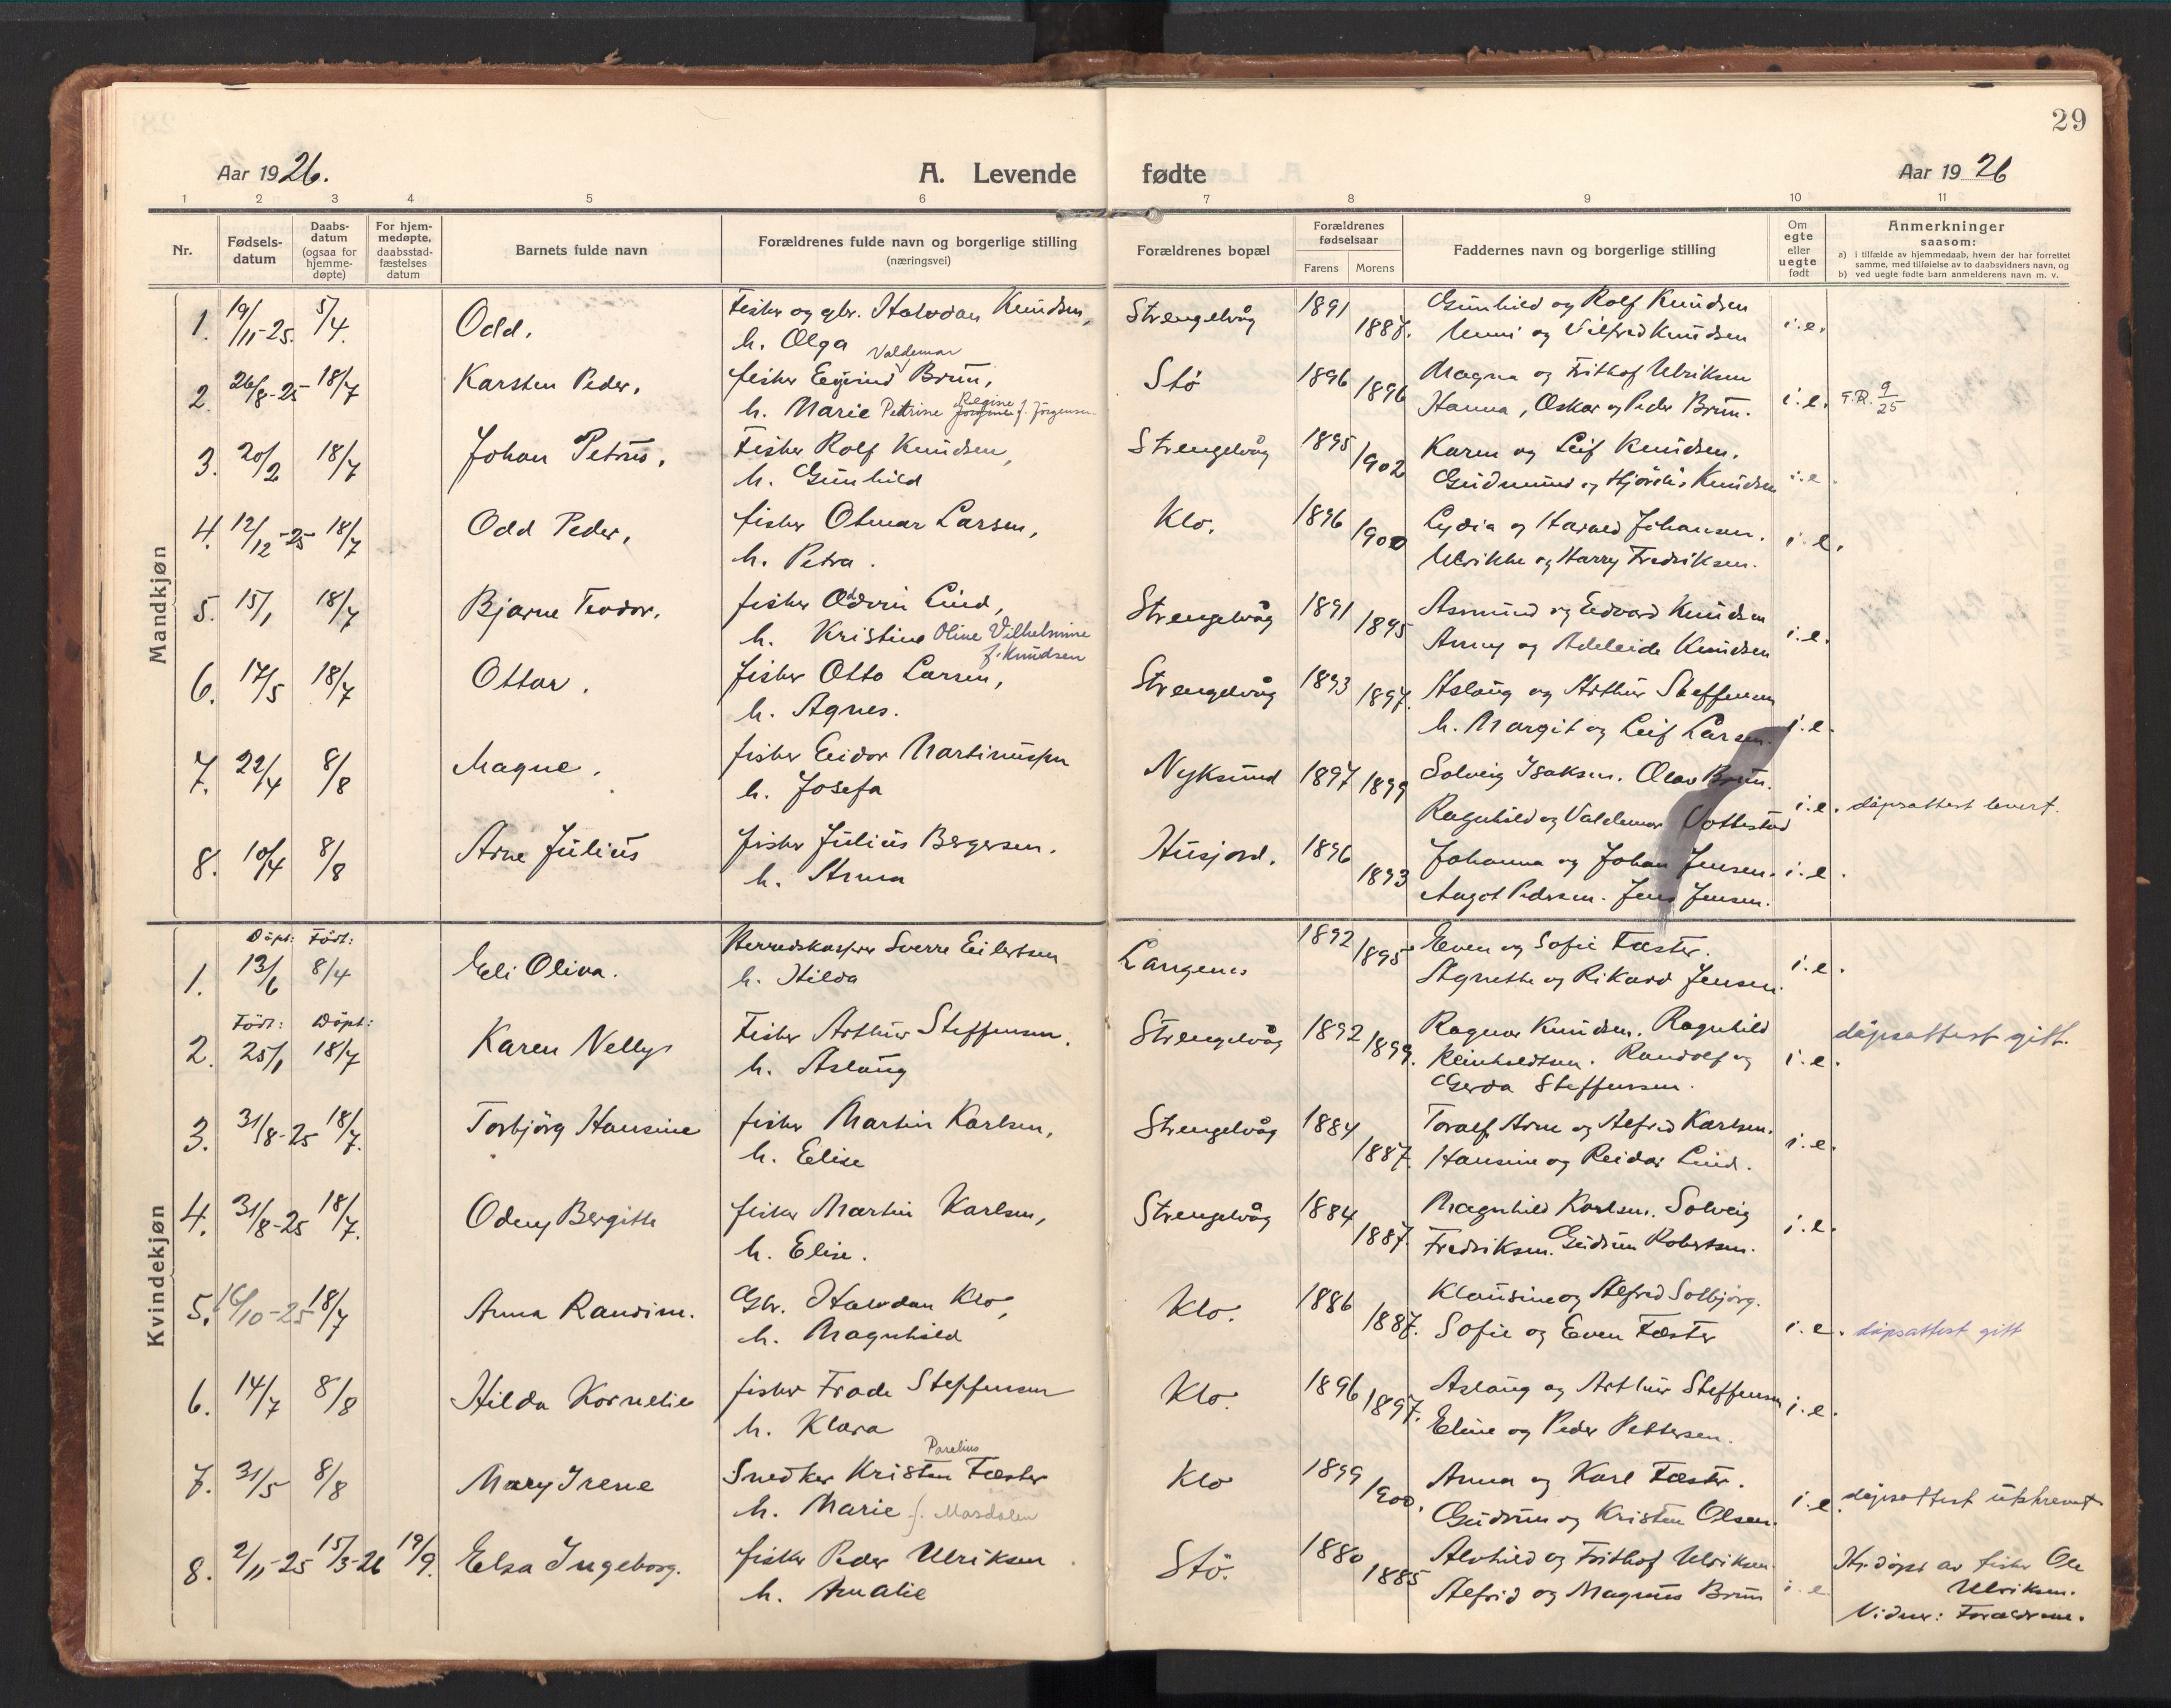 29
Aar 1926.
A. Levende fødte
Aar 1926
1 2 3 4 5 6 7 8 9 10 11
Nr.
Fødsels-
datum
Daabs-
datum
(ogsaa for
hjemme-
døpte)
For hjem-
medøpte,
daabsstad-
fæstelses
datum
Barnets fulde navn
Forældrenes fulde navn og borgerlige stilling
(næringsvei)
Forældrenes bopæl
Forældrenes
fødselsaar
Farens Morens
Faddernes navn og borgerlige stilling
Om
egte
eller
uegte
født
Anmerkninger
saasom:
a) i tilfælde av hjemmedaab, hvem der har forrettet
samme, med tilføielse av to daabsvidners navn, og
b) ved uegte fødte barn anmelderens navn m. v.
Mandkjøn
1. 19/11-25. 5/4. Odd. Fisker og gbr. Halvdan Knudsen, Strengelvåg 1891 Gunhild og Rolf Knudsen
h. Olga 1887. Unni og Vilfred Knudsen i.e.
Valdemar
2. 26/8-25 18/7 Karsten Peder. fisker Eyvind Brun, Stö 1896 Magna og Frithof Ulriksen
h. Marie Petrine Regine f. Jörgensen 1896 Hanna, Oskar og Peder Brun. i.e. T.R. 9/25
3. 20/2 18/7 Johan Petrus. Fisker Rolf Knudsen, Strengelvåg 1895 Karen og Leif Knudsen.
h. Gunhild 1902 Gudmund og Hjördis Knudsen i.e.
4. 12/12-25 18/7 Odd Peder. fisker Otmar Larsen, Klo. 1896 Lydia og Harald Johansen.
h. Petra. 1900 Ulrikke og Harry Fredriksen. i.e.
5. 15/1 18/7 Bjarne Teodor. fisker Odvin Lind, Strengelvåg 1891 Asmund og Edvard Knudsen
h. Kristine Oline Vilhelmine 1895 Anny og Adeleide Knudsen i.e.
f. Knudsen
6. 17/5 18/7 Ottar. fisker Otto Larsen, Strengelvåg 1893 Aslaug og Arthur Steffensen
h. Agnes. 1897. h. Margit og Leif Larsen. i.e.
7. 22/4 8/8 Magne. fisker Eidor Martinussen Nyksund 1897 1899 Solveig Isaksen. Olav Brun.
h. Josefa Ragnhild og Valdemar i.e. dåpsattest levert.
8. 10/4 8/8 Arne Julius fisker Julius Bergersen. Husjord. 1896 Johanna og Johan Jensen. i.e.
h. Anna 1893 Aagot Pedersen. Jens Jensen.
Kvindekjøn
Döpt: Född:
1. 13/6 8/4 Eli Oliva. Herredskasserer Sverre Eilertsen Langenes 1892 1895 Even og Sofie Fæster.
h. Hilda Agnethe og Rikard Jensen. i.e.
Född: Döpt:
2. 25/1 18/7 Karen Nelly Fisker Arthur Steffensen. Strengelvåg 1892 Ragnar Knudsen. Ragnhild dåpsattest gitt.
h. Aslaug 1899. Reinholdtsen. Randolf og i.e.
Gerda Steffensen.
3. 31/8-25 18/7. Torbjörg Hansine fisker Martin Karlsen, Strengelvåg 1884 Toralf, Arne og Alfrid Karlsen.
h. Elise 1887. Hansine og Reidar Lind. i.e.
4. 31/8-25 18/7. Odny Bergitte fisker Martin Karlsen, Strengelvåg 1884 Magnhild Karlsen. Solveig
h. Elise. 1887. Fredriksen. Gudrun Robertsen. i.e.
5. 16/10-25 18/7 Anna Randine. Gbr. Halvdan Klo, Klo. 1886 Klausine og Alfred Solbjörg.
h. Magnhild 1887. Sofie og Even Fæster i.e. dåpsattest gitt
6. 14/7 8/8 Hilda Kornelie fisker Frode Steffensen Klo. 1896 Aslaug og Arthur Steffensen
h. Klara 1897. Eline og Peder Pettersen. i.e.
Parelius
7. 31/5 8/8 Mary Irene Snedker Kristen Fæster Klo 1899 Anna og Karl Fæster.
h. Marie f. Masdalen 1900. Gudrun og Kristen Olsen. i.e. dåpsattest utskrevet
8. 2/11-25 15/3-26 19/9. Elsa Ingeborg. fisker Peder Ulriksen Stö. 1880 Alvhild og Frithof Ulriksen. Hj. döpt av fisker Ole
h. Amalie 1885 Alfrid og Magnus Brun i.e. Ulriksen.
Vidner: Forældrene.